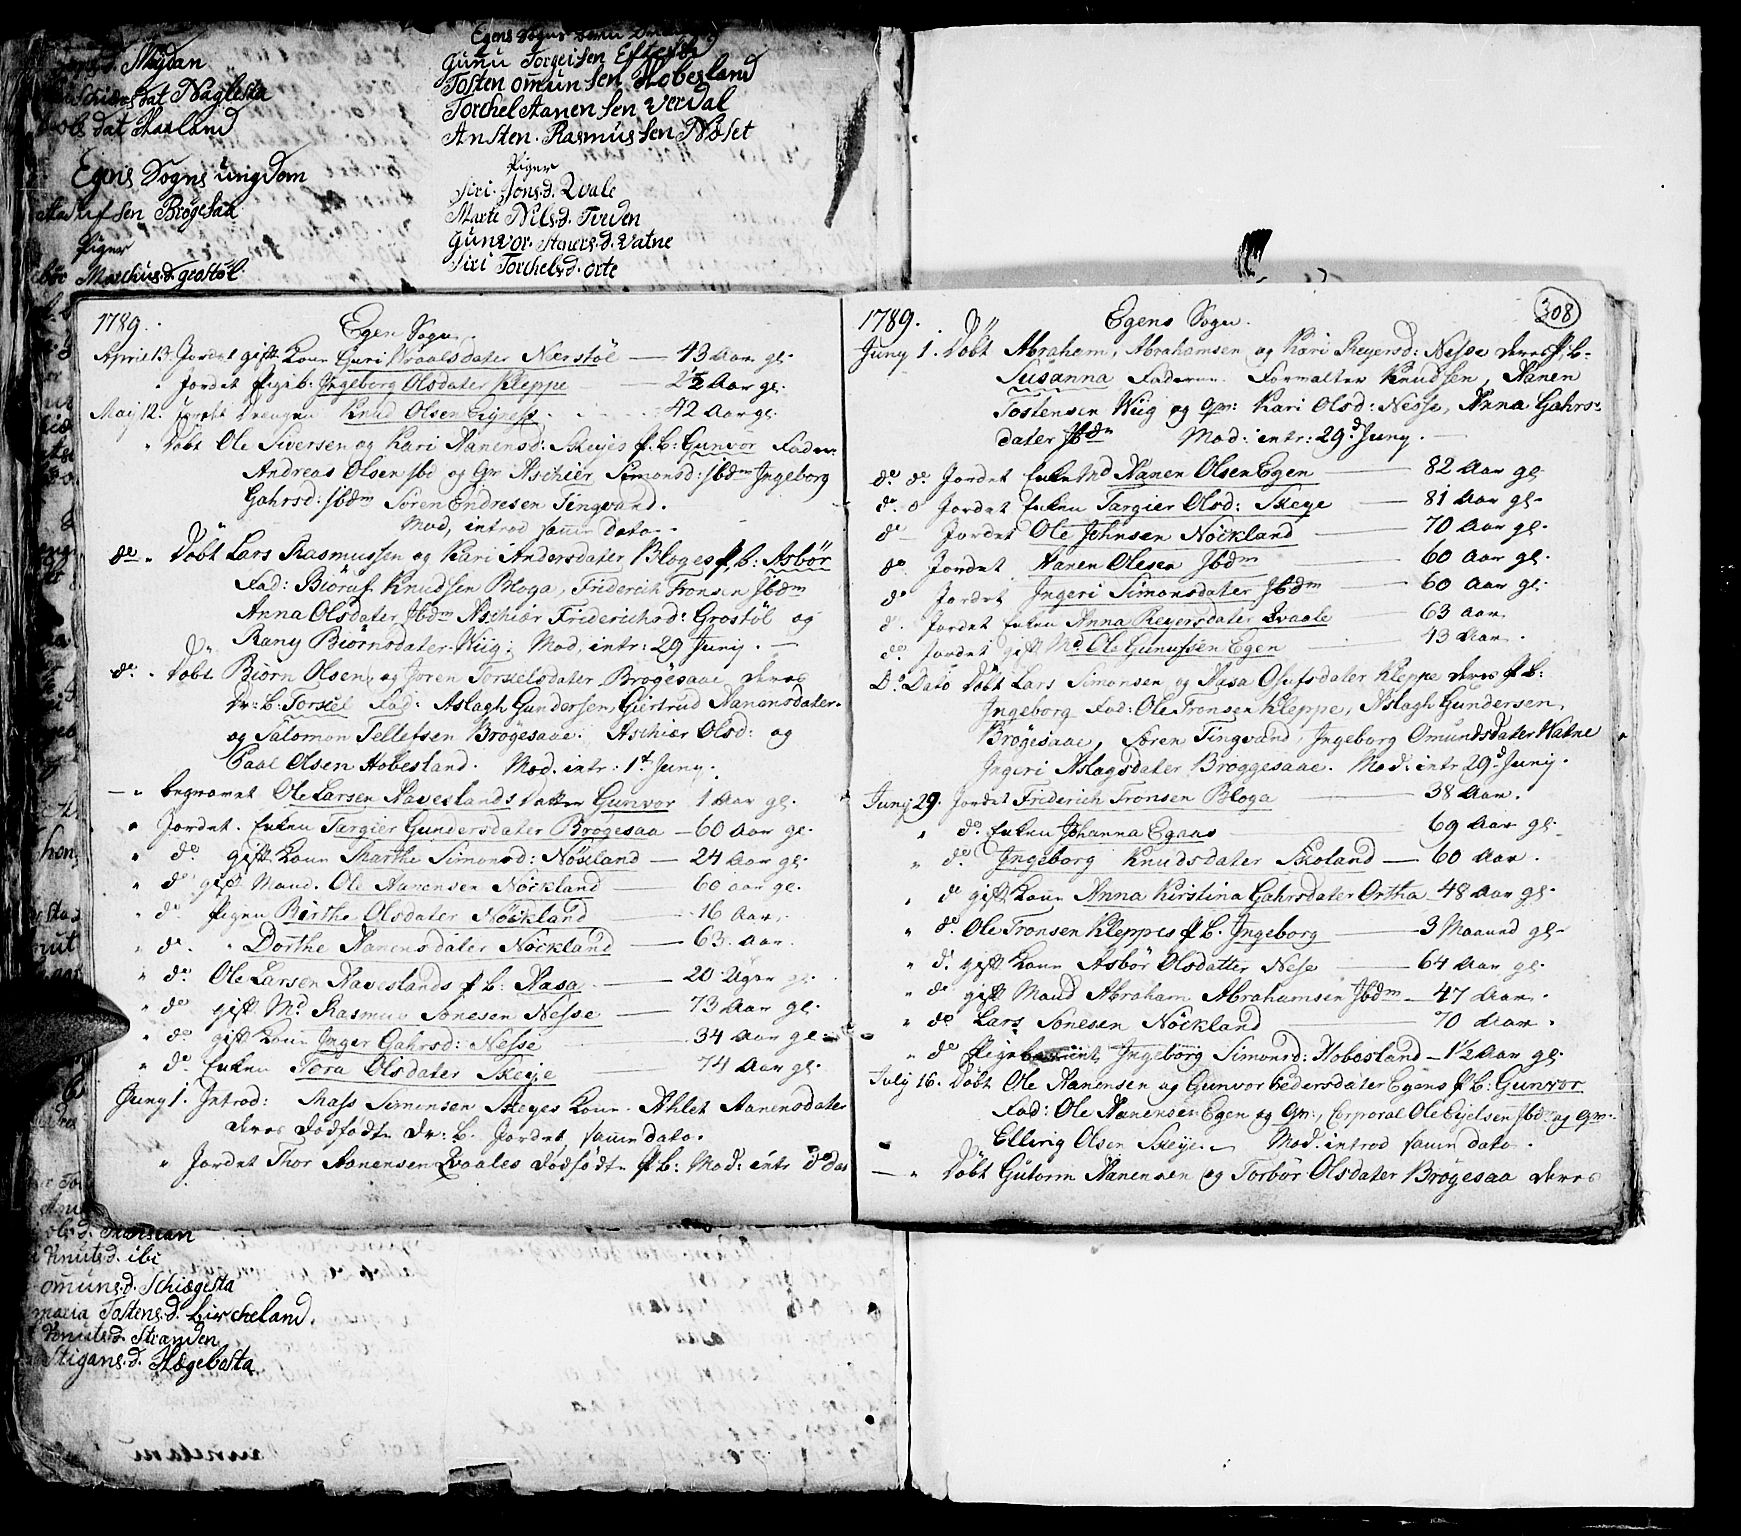 Naglesta
dat Haaland
Egens Sogns ungdom
sen Brøgesaa
Piger
Marchus.d. grostøl
Gunu Torgeisen Eftestøl
Tosten omunsen Hobesland
Torchel Aanensen Verdal
Ansten. Rasmussen Nøset
Piger
Siri. Jons.d. Qvale
Marte Nils.d. Tveden
Gunvor. Staners.d. Vatne
Siri Torchels.d. orte
1789. Egens Sogn.
April 13. Jordet gift Kone Guri Kraalsdater Nærstøl — 43 Aar gl.
" Jordet Pigeb: Ingeborg Olsdater Kleppe 2½ Aar gl.
May 12. Jordet Drengen Knud Olsen Egness. 42 Aar gl.
" Døbt Ole Siversen og Kari Aanensd: Skeyes P. b: Gunvor Fadere
Andreas Olsen ibd og Gr Aschier Simonsd: Jbdm Ingeborg
Gahrsd: Jbdm Søren Endresen Tingvand.
Mod, introd samme Dato.
do " Døbt Lars Rasmussen og Kari Andersdater Bloges P. b: Asbør
Fad: Biøruf Knudsen Bloga, Friderich Tronsen Jbdm
Anna Olsdater Jbdm Aschiær Friderichsd: Grostøl og
Rany Biørnsdater Wiig: Mod, intr: 29 Juny. —
do. " Døbt Biørn Olsen, og Joren Torkielsdater Brøgesaae deres
Dr: B. Torkiel Fad: Aslagh Gundersen, Giertrud Aanensdater
og Salomon Tellefsen Brøgesaae. Aschiær Olsd: og
Paal Olsen Hobesland. Mod. intr: 1st Juny.
— " begravet Ole Larsen Haveslands Datter Gunvor 1 Aar gl.
" Jordet. Enken Targier Gundersdater Brøgesaa — 60 Aar gl.
" do. gift Kone Marthe Simonsd: Nøkland — 24 Aar gl.
" do gift Mand. Ole Aanensen Nøckland — 60 aar gl.
" do. Pigen Birthe Olsdater Nøckland — 16 Aar.
" do. " Dorthe Aanensdater Nøckland — 63. Aar.
" do Ole Larsen Haveslands P b: Aasa 20 Uger gl.
" do gift Md. Rasmus Tonesen Nesse — 73 Aar gl.
" do. gift Kone Inger Gahrsd: Nesse 34 Aar gl.
" do. Enken Tora Olsdater Skeye 74 Aar gl.
Juny 1. Introd: Mass Simensen Skeyes Kone. Ahlet Aanensdater
deres Dødfødte Dr: b. Jordet samme dato.
" Jordet Thor Aanensen Qvaales Dødfødte P b: Mod: intr do Dat
1789. Egens Sogn. 308
Juny 1. Døbt Abraham, Abrahamsen og Kari Reyersd: Nesse deres P. b.
Susanna Faderne Formalter Knudsen, Aanen
Tostensen Wiig og Gm: Kari Olsd: Nesse, Anna Gahrs-
dater Jbdm Mod: intr: 29d Juny. —
do. do. Jordet Enke Md Aanen Olsen Egen — 82 Aar gl
do. o Jordet Enken Targier Olsd: Skeye — 81 Aar gl.
do Jordet Ole Johnsen Nöckland — 70 Aar gl.
do Jordet Aanen Olesen Jbdm 60 Aar gl.
do Jordet Ingeri Simonsdater Jbdm — 60 Aar gl.
d. Jordet Enken Anna Reyersdater Qvaale — 63 Aar
do. Jordet gift Md Ole Gunussen Egen 43 Aar.
Do. Dato Døbt Lars Simonsen og Aasa Olufsdater Kleppe deres P b:
Ingeborg Fad: Ole Tronsen Kleppe, Aslagh Gundersen,
Brøgesaae, Søren Tingvand, Ingeborg Omundsdater Watne
Ingeri Aslagsdater Brøggesaae. Mod: intr 29d Juny.
Juny 29. Jordet Friderich Tronsen Bloga 38 Aar.
" do. Enken Johanna Egaas 69 Aar gl.
" do. Ingeborg Knudsdater Skoland — 60 Aar.
" do gift Kone Anna Kirstina Gahrsdater Ortha 48 Aar gl.
" do. Ole Tronsen Kleppes P b. Ingeborg — 3 Maaned gl.
" d. gift Kone Asbør Olsdatter Nese — 64 Aar gl.
" do gift Mand Abraham Abrahamsen Jbdm — 47 Aar.
" do Lars Tonesen Nöckland 70 Aar.
" do Pige Ingeborg Simonsd: Hobesland — 1½ Aar gl.
July 16. Døbt Ole Aanensen og Gunvor Pedersdater Egens P b: Gunvor
Fad: Ole Aanensen Egen og Gm:, Corporal Ole Eyelsen Jbdm og Gm.
Elling Olsen Skeye. — Mod. introd samme dato.
— " Døbt Gutorm Aanensen og Torbør Olsdater Brøgesaa deres
Knuts.d. ibi
omuns.d. Schiægesta
maria Tostens.d. birkeland.
Knuts.d. Stranden
Stigans.d. Hægebosta